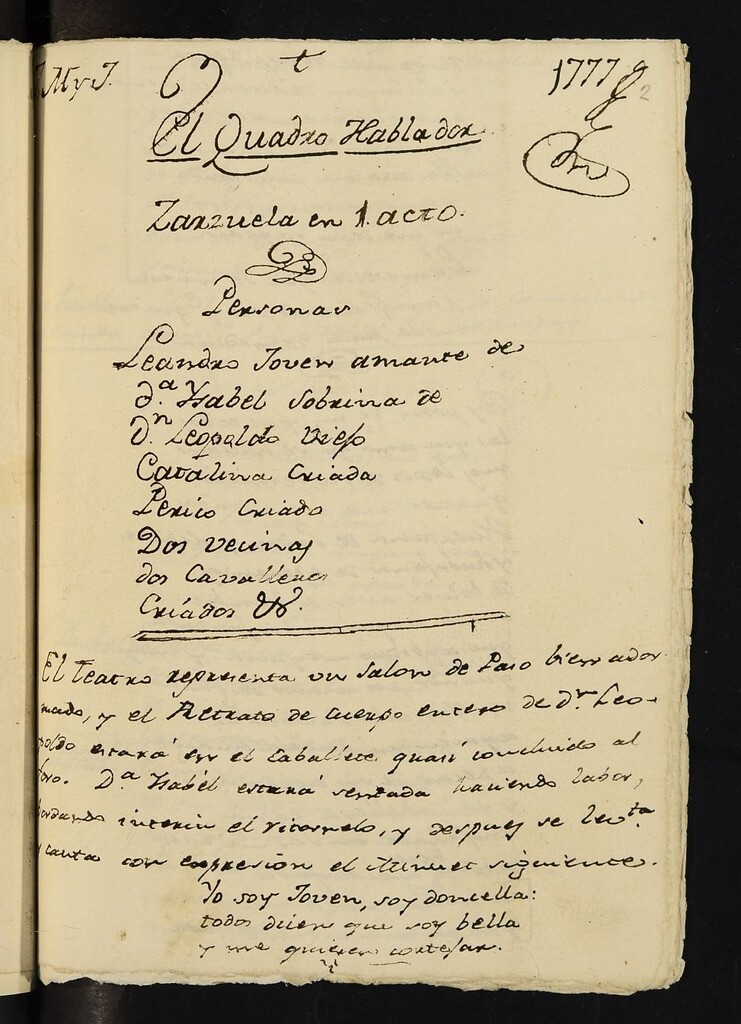 t
M y J. 1777
2
El Quadro Hablador
Zarzuela en 1. acto.
Personas
Leandro Joven amante de
D.ª Ysabel Sobrina de
D.n Leopoldo Viejo
Catalina Criada
Perico Criado
Dos vecinas
dos Cavalleros
Criados &.
El teatro representa un salon de Paso bien ador
nado, y el Retrato de cuerpo entero de D.n Leo-
poldo estará en el Caballete quasi concluido al
foro. D.ª Ysabel estará sentada haciendo labor,
bordando interin el ritornelo, y despues se levta
y canta con expresion el Minuet siguiente.
Yo soy Joven, soy doncella:
todos dicen que soy bella
y me quieren cortejar.